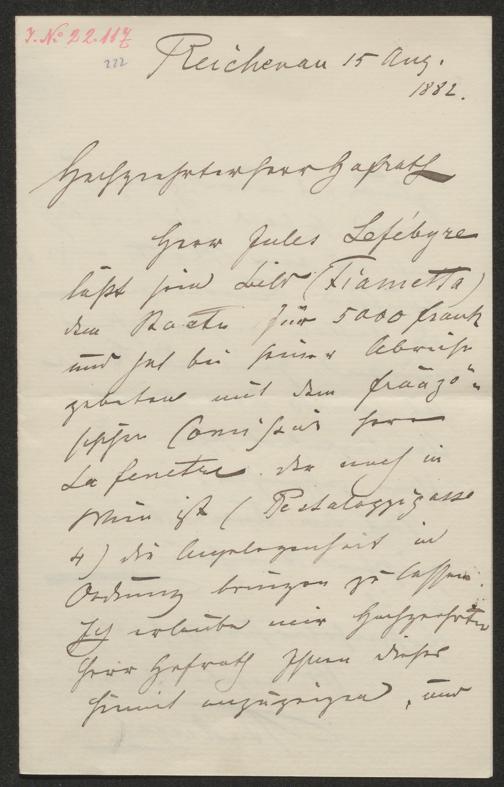 J. № 22.117
222
Reichenau 15 Aug.
1882.
Hochgeehrter Herr Hofrath
Herr Jules Lefébvre
läßt sein Bild (Fiametta)
dem Staate für 5000 frank
und hat bei seiner Abreise
gebeten mit dem französ-
sischen Comissär Herrn
La fenetre der noch in
Wien ist (Pestalozzigasse
4) die Angelegenheit in
Ordnung bringen zu lassen.
Ich erlaube mir Hochgeehrter
Herr Hofrath Ihnen dieses
hiemit anzuzeigen, und